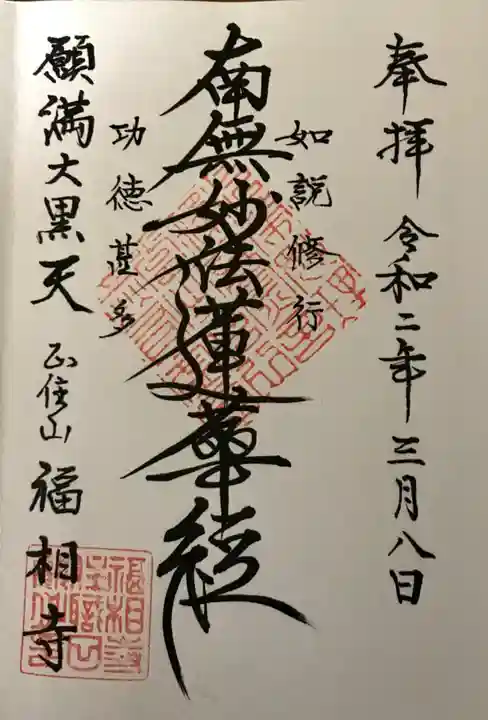 奉拝 令和二年三月八日
如説修行
南無妙法蓮華経
功徳甚多
願満大黒天 正住山 福相寺